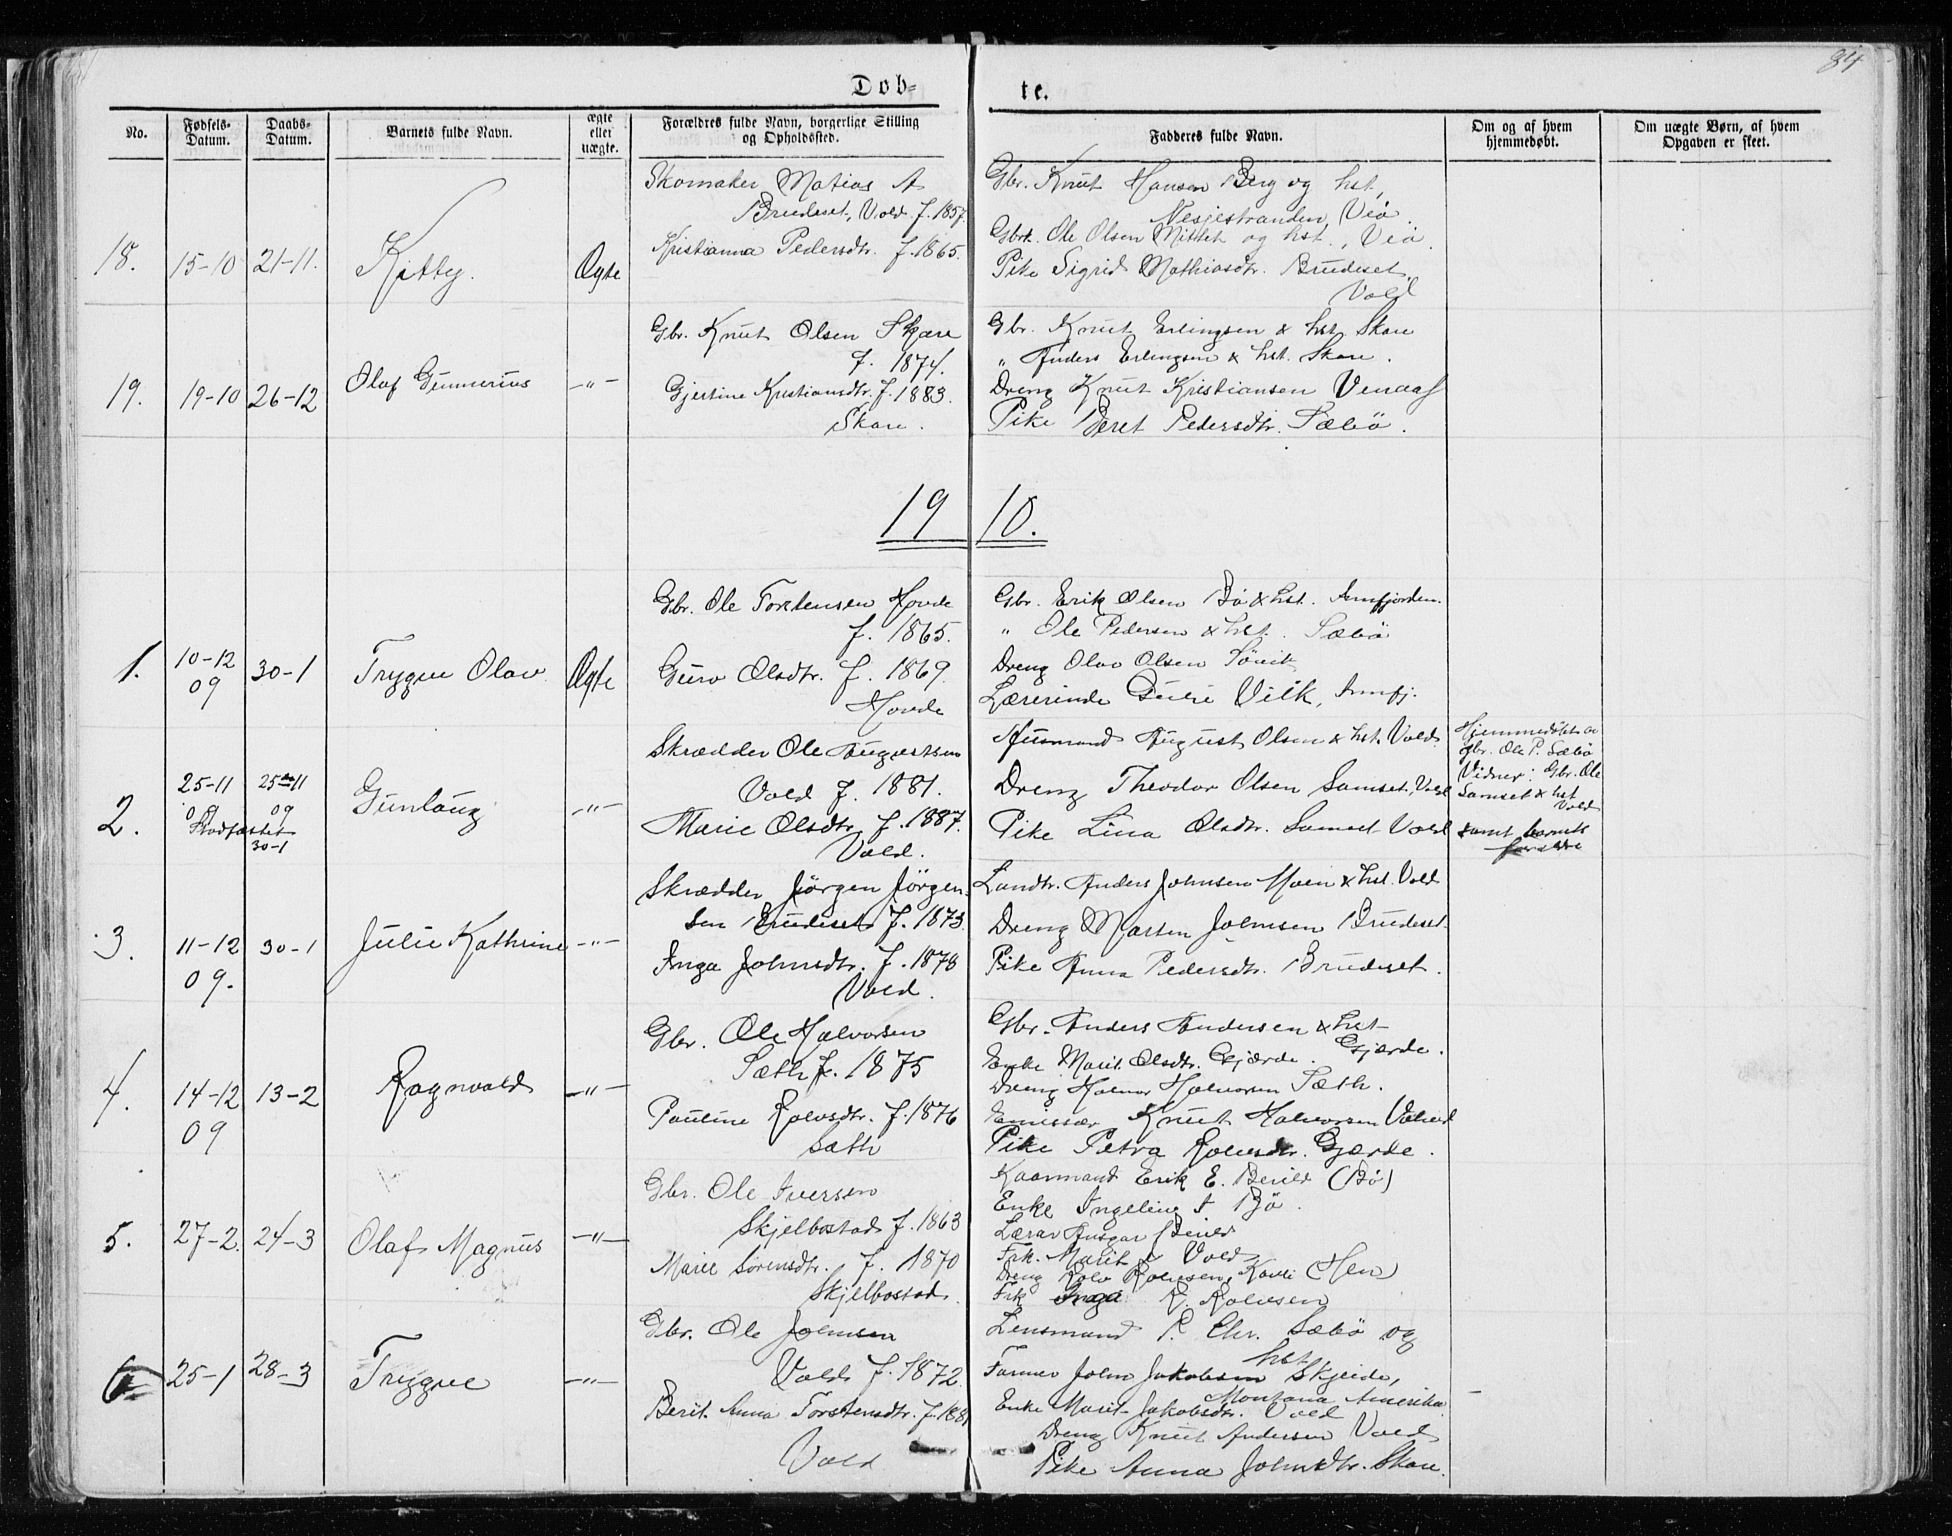 84
Døb- te.
No. Fødsels-Datum. Daabs-Datum. Barnets fulde Navn. ægte eller uægte. Forældres fulde Navn, borgerlige Stilling og Opholdssted. Fadderes fulde Navn. Om og af hvem hjemmedøbt. Om uægte Børn, af hvem Opgaven er skeet.
18. 15-10 21-11. Kitty. Ægte
Skomaker Matias A
Brudeset, Vold f. 1857.
Kristianna Pedersdtr. f. 1865.
Gbr. Knut Hansen Berg og hst,
Nesjestranden, Veø.
Gbrk. Ole Olsen Mittet og hst., Veø.
Pike Sigrid Mathiasdtr. Brudeset
Vold
19. 19-10 26-12 Olaf Gunnerius -"-
Gbr. Knut Olsen Skare
f. 1874.
Gjertine Kristiansdtr. f. 1883.
Skare.
Gbr. Knut Erlingsen & hst. Skare
" Anders Erlingsen & hst. Skare.
Dreng Knut Kristiansen Venaas
Pike Beret Pedersdtr. Sæbø.
19 10.
1. 10-12 09 30-1 Trygve Olav Ægte
Gbr. Ole Torstensen Hovde
f. 1865.
Guro Olsdtr. f. 1869.
Hovde
Gbr. Erik Olsen Bø & hst. Innfjorden.
" Ole Pedersen & hst. Sæbø
Dreng Olav Olsen
Lærerinde Vik, Innfj.
2. 25-11 09 25-11 09 Gunlaug -"-
Stadfæstet
30-1
Skrædder Ole Augustsen
Vold f. 1881.
Marie Olsdtr. f. 1887.
Vold.
Husmand August Olsen & hst. Vold
Dreng Theodor Olsen Samset, Vold
Pike Lina Olsdtr. Samset Vold
Hjemmedøbt av
Gbr. Ole P. Sæbø
Vidner: Gbr. Ole
Samset & hst
Vold
samt barnets
forældre
3. 11-12 09. 30-1 Julie Kathrine -"-
Skrædder Jørgen Jørgen-
sen Brudeset f. 1873.
Inga Johnsdtr. f. 1878
Vold.
Landh. Anders Johnsen Moen & hst. Vold
Dreng Morten Johnsen Brudeset.
Pike Anna Pedersdtr. Brudeset.
4. 14-12 09 13-2 Ragnvald -"-
Gbr. Ole Halvorsen
Sæth f. 1875
Pauline Rolvsdtr. f. 1876
Sæth
Gbr. Anders Andersen & hst
Gjærde.
Enke Marit Olsdtr. Gjærde.
Dreng Halvor Halvorsen Sæth.
Emissær Knut Halvorsen
Pike Petra Rolvsdtr. Gjærde.
5. 27-2. 24-3 Olaf Magnus -"-
Gbr. Ole Iversen
Skjelbostad f. 1863
Marie Sørensdtr. f. 1870
Skjelbostad.
Kaarmand Erik E. Beill (Bø)
Enke Ingeline I Bø.
Lærar Ansgar Beill
Frk. Marit Vold
Dreng Rolv Rolvsen, Kavli (Hen)
Frk Inga R. Rolvsen
6 25-1 28-3 Trygve -"-
Gbr. Ole Johnsen
Vold f. 1872.
Berit Anna Torstensdtr. f. 1881
Vold
Lensmand P. Chr. Sæbø og
hst
Farmer John Jakobsen Skjeide,
Montana Amerika
Enke Marit Jakobsdtr. Vold
Dreng Knut Andersen Vold
Pike Anna Johnsdtr. Skare.